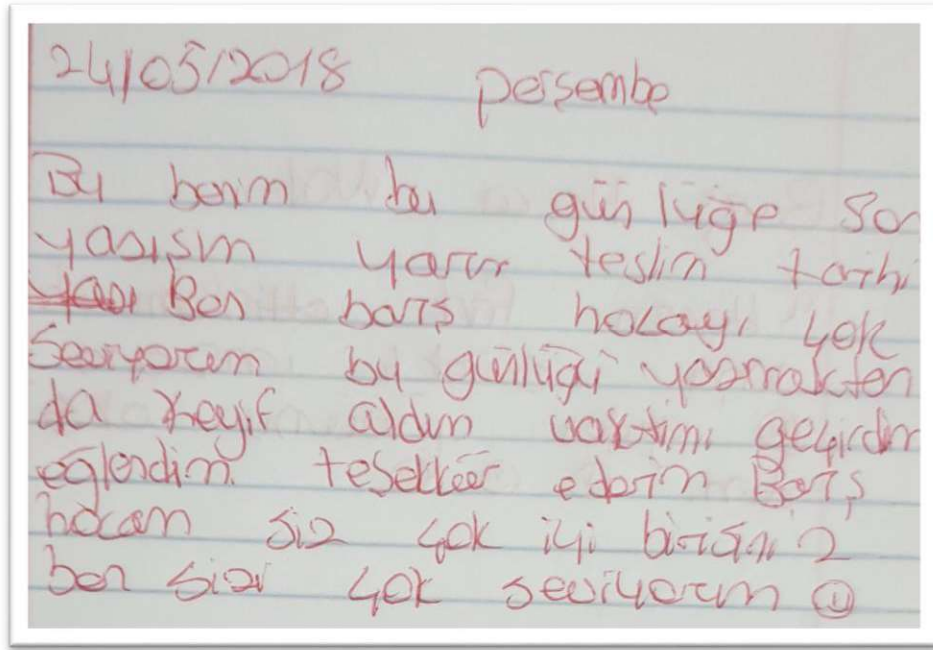 24/05/2018 perşembe
Bu benim bu günlüğe son
yazısım yarın teslim tarihi
Ben barış hocayı çok
Seviyorum bu günlüğü yazmakten
da keyif aldım vaktimi geçirdim
eğlendim teşekkür ederim Barış
hocam siz çok iyi birisiniz
ben sizi çok seviyorum ☺